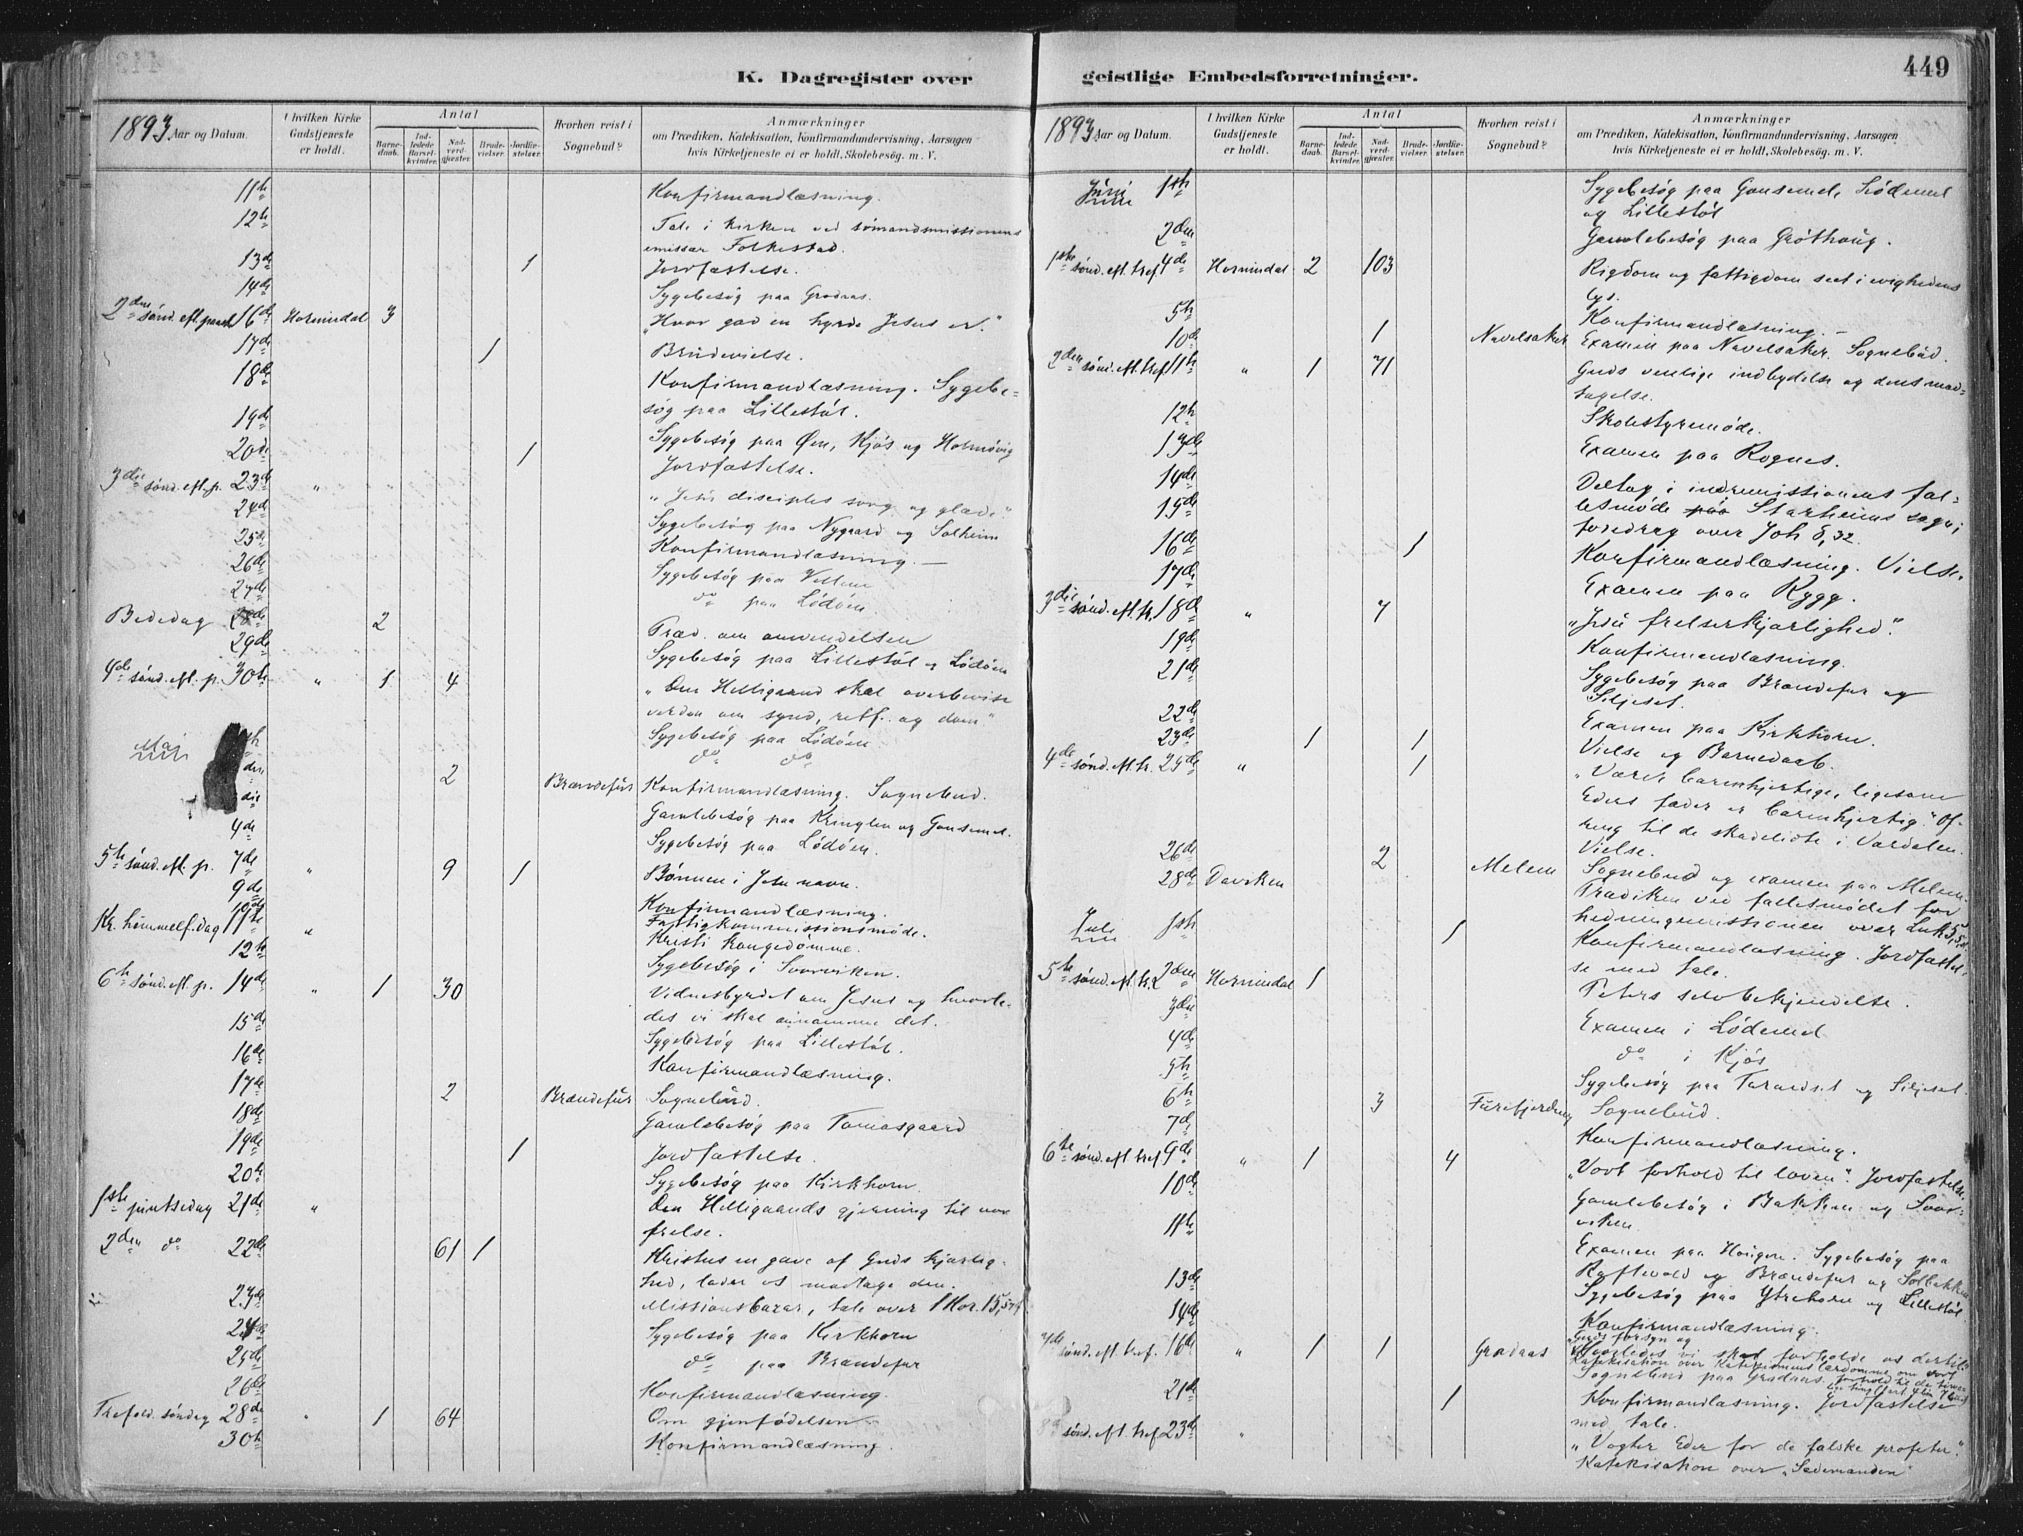 K. Dagregister over
1893 Aar og Datum.
I hvilken Kirke Gudstjeneste er holdt.
Antal
Barnedaab.
Indledede Barselkvinder.
Nadverdgjæster.
Brudevielser.
Jordfæstelser.
Hvorhen reist i Sognebud?
Anmærkninger
om Prædiken, Katekisation, Konfirmandundervisning, Aarsagen
hvis Kirketjeneste ei er holdt, Skolebesøg. m. V.
11th Konfirmandlæsning.
12th Tale i kirken ved sømandsmissionens
emissær Folkestad.
13de 1 Jordfæstelse.
14de Sygebesøg paa Grodaas.
2den sønd. eft. paaske 16de Hornindal 3 "Hvor god en hyrde Jesus er."
17de 1 Brudevielse.
18de Konfirmandlæsning. Sygebe-
søg paa Lillestøl.
19de Sygebesøg paa Øen, Kjøs og Hornøvig
20de 1 Jordfæstelse.
3die sønd. eft. p. 23de " "Jesu disciples sorg og glæde"
24de Sygebesøg paa Nygaard og Solheim
25de Konfirmandlæsning. —
26de Sygebesøg paa
27de do paa Lødøen.
Bededag 28de 2 Præd. om omvendelsen
29de Sygebesøg paa Lillestøl og Lødøen
4de sønd. eft. p. 30te " 1 4 "Den Helligaand skal overbevise
verden om synd, retf. og dom"
Maj Sygebesøg paa Lødøen
den do do
die 2 Brændefur Konfirmandlæsning. Sognebud.
4de Gamlebesøg paa Kringlen og Gausemel.
Sygebesøg paa Lødøen.
5th sønd. eft. p. 7de " 9 1 Bønnen i Jesu navn.
9de Konfirmandlæsning.
10de Fattigkommissionsmøde.
Kr. himmelf. dag 11te " Kristi kongedømme.
12th Sygebesøg i Svorviken.
6th sønd. eft. p. 14de " 1 30 Vidnesbyrdet om Jesus og hvorle-
des vi skal annamme det.
15de Sygebesøg paa Lillestøl.
16de Konfirmandlæsning.
17de 2 Brændefur Sognebud.
18de Gamlebesøg paa Tomasgaard
19de 1 Jordfæstelse.
20th Sygebesøg paa Kirkhorn
1ste pintsedag 21de " Den Helligaands gjerning til vor
frelse.
2den do 22de 61 1 Kristus en gave af Guds kjærlig-
hed, lader os modtage den.
23de Missionsbazar, tale over 1 Kor. 15,58
24de Sygebesøg paa Kirkhorn
25de do paa Brændefur
26de Konfirmandlæsning.
Trefold. søndag 28de " 1 64 Om gjenfødelsen
30te Konfirmandlæsning.
geistlige Embedsforretninger.
449
1893 Aar og Datum.
I hvilken Kirke Gudstjeneste er holdt.
Antal
Barnedaab.
Indledede Barselkvinder.
Nadverdgjæster.
Brudevielser.
Jordfæstelser.
Hvorhen reist i Sognebud?
Anmærkninger
om Prædiken, Katekisation, Konfirmandundervisning, Aarsagen
hvis Kirketjeneste ei er holdt, Skolebesøg. m. V.
Juni 1ste Sygebesøg paa Gausemel, Lødemel
og Lillestøl
2den Gamlebesøg paa Grøthaug.
1ste sønd. eft. tref 4de Hornindal 2 103 Rigdom og fattigdom seet i evighedens
lys.
5th Konfirmandlæsning. —
10de 1 Navelsaker Examen paa Navelsaker. Sognebud.
2den sønd. eft. tref 11th " 1 71 Guds venlige indbydelse og dens mod-
tagelse.
12th Skolestyremøde.
13de Examen paa Rognes.
14de Deltog i indremissionens fæl-
15de lesmøde i Starheims sogn;
foredrag over Joh 8,32.
16de 1 Konfirmandlæsning. Vielse.
17de Examen paa Rygg.
3die sønd. eft. tr. 18de " 7 "Jesu frelserkjærlighed".
19de Konfirmandlæsning.
21de Sygebesøg paa Brændefur og
Siljeset.
22de Examen paa Kirkhorn.
23de 1 1 Vielse og Barnedaab.
4de sønd. eft. tr. 25de " 1 "Værer barmhjertige, ligesom
Eders fader er barmhjertig." Of-
fring til de skadelidte i Værdalen.
Vielse.
26de 2 Melem Sognebud og examen paa Melem
28de Davsken Prædiken ved fællesmødet for
hedningemissionen over Luk 5,
Juli 1ste 1 Konfirmandlæsning. Jordfæstel-
se med tale.
5te sønd. eft. tr. 2den Hornindal 1 Peters selvbekjendelse.
3die Examen i Lødemel
4de do i Kjøs
5th Sygebesøg paa Taraldset og Siljeset.
6th 3 Furefjerdung Sognebud.
7de Konfirmandlæsning.
6te sønd. eft. tref 9de " 1 4 "Vort forhold til loven". Jordfæstelse
10de Gamlebesøg i Bakken og Svor-
viken
11th Examen paa Haugen. Sygebesøg paa
Raftevold og Brændefur og
13de Sygebesøg paa Ytrehorn og Lillestøl
14de Konfirmandlæsning.
7de sønd. eft. tref. 16de " 1 1 Grodaas "Guds forsyn og
Hvorledes vi skal forholde os dertil"
Katekisation over Katekismens lærdomme om vort
Sognebud paa Grodaas.
21de 1 Konfirmandlæsning. Jordfæstelse
med tale.
8de sønd. eft. tref 23de " "Vogter Eder for de falske profeter".
Katekisation over "Sædemanden"